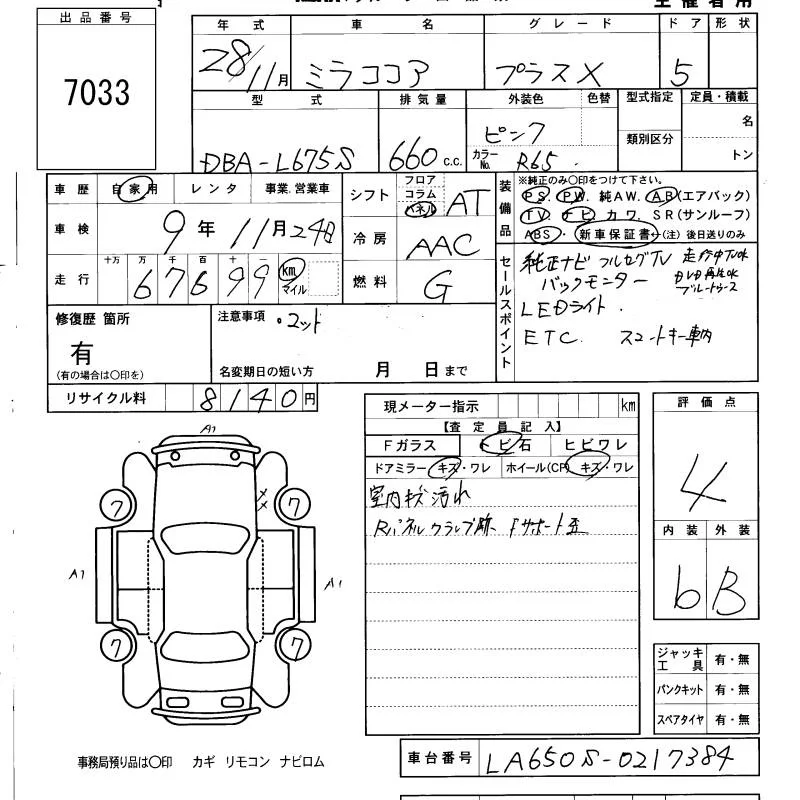 出品番号
7033
年式 車名 グレード ドア 形状
28/11月 ミラココア プラスX 5
型式 排気量 外装色 色替 型式指定 定員・積載
ピンク 類別区分 名
DBA-L675S 660 c.c. カラーNo. R65 トン
車歴 自家用 レンタ 事業.営業車
車検 9年11月24日
走行 十万 万 千 百 十 一
67699 km マイル
シフト フロア コラム パネル AT
冷房 AAC
燃料 G
装備品
※純正のみ〇印をつけて下さい。
PS. PW. 純AW. AB(エアバック)
TV ナビ カワ. SR(サンルーフ)
ABS・新車保証書←(注) 後日送りのみ
セールスポイント
純正ナビ フルセグTV 走行中TVok
バックモニター DVD再生ok
ブルートゥース
LEDライト.
ETC. スマートキー車内
修復歴 箇所
有
(有の場合は〇印を)
注意事項
名変期日の短い方 月 日まで
リサイクル料 8140円
現メーター指示 km
【査定員記入】
Fガラス トビ石 ヒビワレ
ドアミラー キズ・ワレ ホイール(CP) キズ・ワレ
室内キズ汚れ
Rパネルクランプ跡 Fサポート歪
評価点
4
内装 外装
6 B
A1
7 7
A1 A1
7 7
ジャッキ工具 有・無
パンクキット 有・無
スペアタイヤ 有・無
事務局預り品は〇印 カギ リモコン ナビロム
車台番号 LA650S-0217384